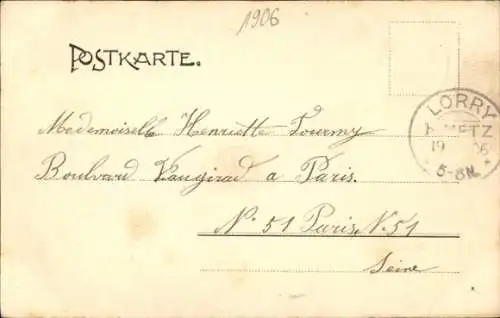 1906
POSTKARTE.
LORRY
b. METZ
19 06
5-8N.
Mademoiselle Henriette Tourmy
Boulvard Vaugirad a Paris.
N° 51 Paris, N. 51
Seine